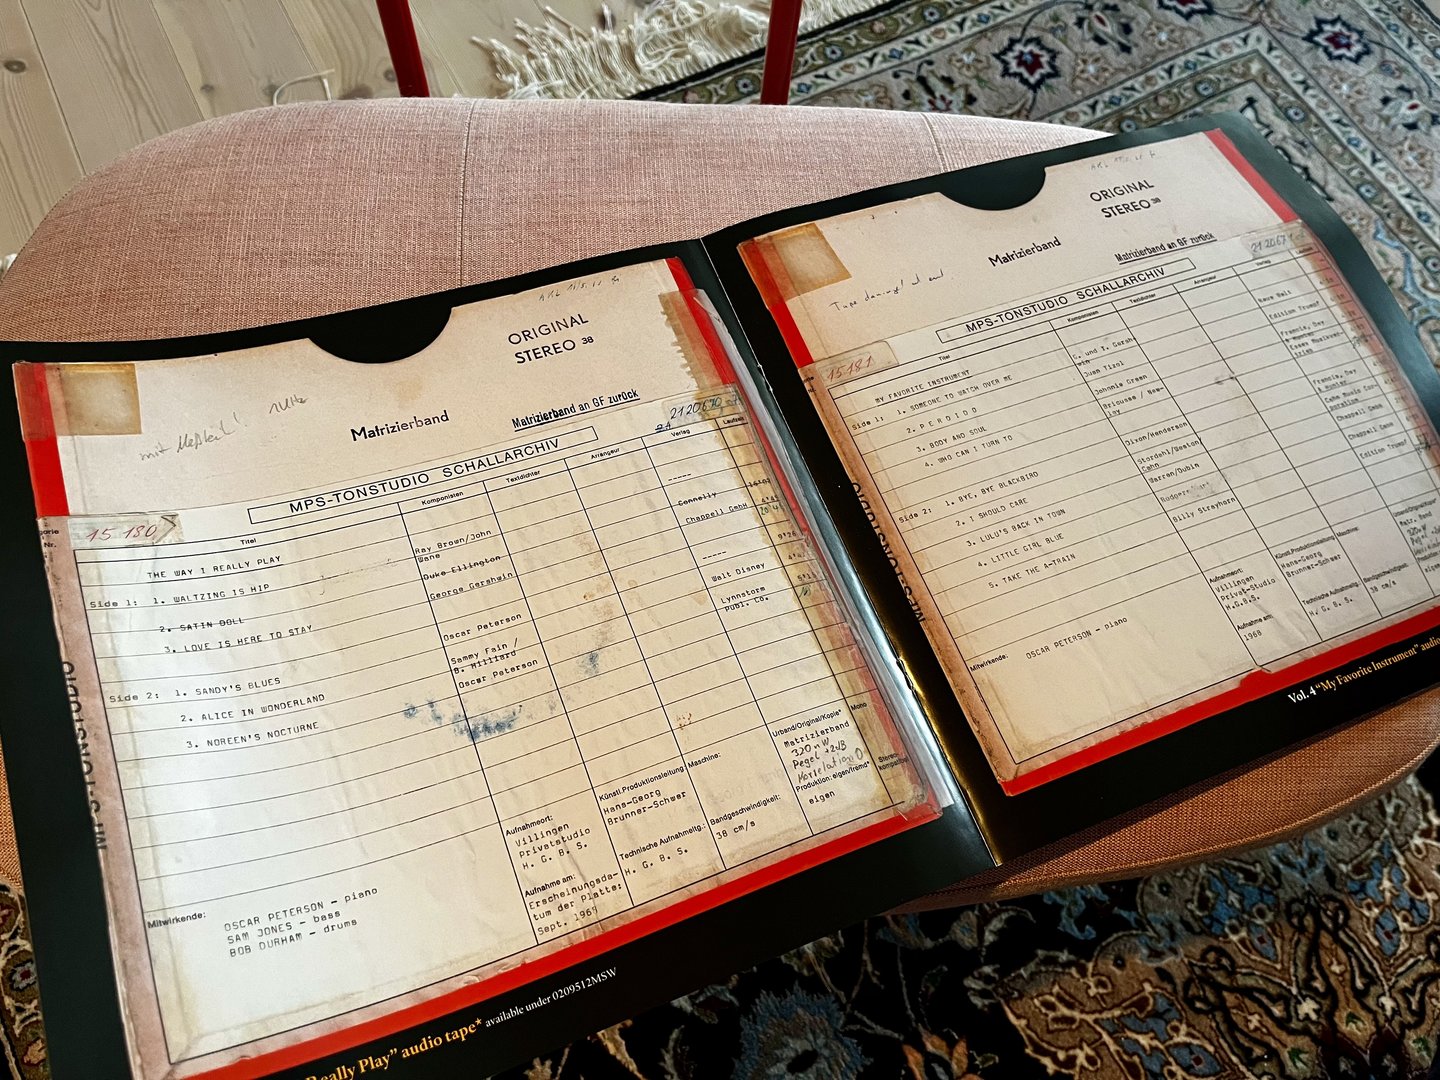 ORIGINAL
STEREO 38
Matrizierband
Matrizierband an GF zurück
mit
2120670
MPS-TONSTUDIO SCHALLARCHIV
15 180
Titel
Komponisten
Textdichter
Arrangeur
Verlag
Laufzeit
THE WAY I REALLY PLAY
Side 1: 1. WALTZING IS HIP
Ray Brown/John
Wane
-----
2. SATIN DOLL
Duke Ellington
Connelly
3. LOVE IS HERE TO STAY
George Gershwin
Chappell GmbH
Side 2: 1. SANDY'S BLUES
Oscar Peterson
-----
2. ALICE IN WONDERLAND
Sammy Fain /
B. Hilliard
Walt Disney
3. NOREEN'S NOCTURNE
Oscar Peterson
Lynnstorm
Publ. Co.
Mitwirkende:
OSCAR PETERSON - piano
SAM JONES - bass
BOB DURHAM - drums
Aufnahmeort:
Villingen
Privatstudio
H. G. B. S.
Aufnahme am:
Erscheinungsda-
tum der Platte:
Sept. 1969
Künstl. Produktionsleitung:
Hans-Georg
Brunner-Schwer
Technische Aufnahmeltg.:
H. G. B. S.
Maschine:
Bandgeschwindigkeit:
38 cm/s
Urband/Original/Kopie*
Matrizierband
320 nW
Pegel +2dB
Korrelation 0
Produktion: eigen/fremd*
eigen
Mono
Stereo
kompatibel
Really Play” audio tape* available under 0209512MSW
ORIGINAL
STEREO 38
Matrizierband
Matrizierband an GF zurück
MPS-TONSTUDIO SCHALLARCHIV
15 181
Titel
Komponisten
Textdichter
Arrangeur
Verlag
MY FAVORITE INSTRUMENT
Side 1: 1. SOMEONE TO WATCH OVER ME
G. und I. Gersh-
win
Neue Welt
2. P E R D I D O
Juan Tizol
Edition Trumpf
3. BODY AND SOUL
Johnnie Green
Francis, Day
& Hunter
4. WHO CAN I TURN TO
Bricusse / New-
ley
Essex Musikver-
trieb
Side 2: 1. BYE, BYE BLACKBIRD
Dixon/Henderson
Francis, Day
& Hunter
2. I SHOULD CARE
Stordahl/Weston/
Cahn
3. LULU'S BACK IN TOWN
Warren/Dubin
Chappell GmbH
4. LITTLE GIRL BLUE
Chappell GmbH
5. TAKE THE A-TRAIN
Billy Strayhorn
Edition Trumpf
Mitwirkende:
OSCAR PETERSON - piano
Aufnahmeort:
Villingen
Privat-Studio
H.G.B.S.
Aufnahme am:
1968
Künstl. Produktionsleitung:
Hans-Georg
Brunner-Schwer
Technische Aufnahmeltg.:
H. G. B. S.
Maschine:
Bandgeschwindigkeit:
38 cm/s
Vol. 4 “My Favorite Instrument” audio